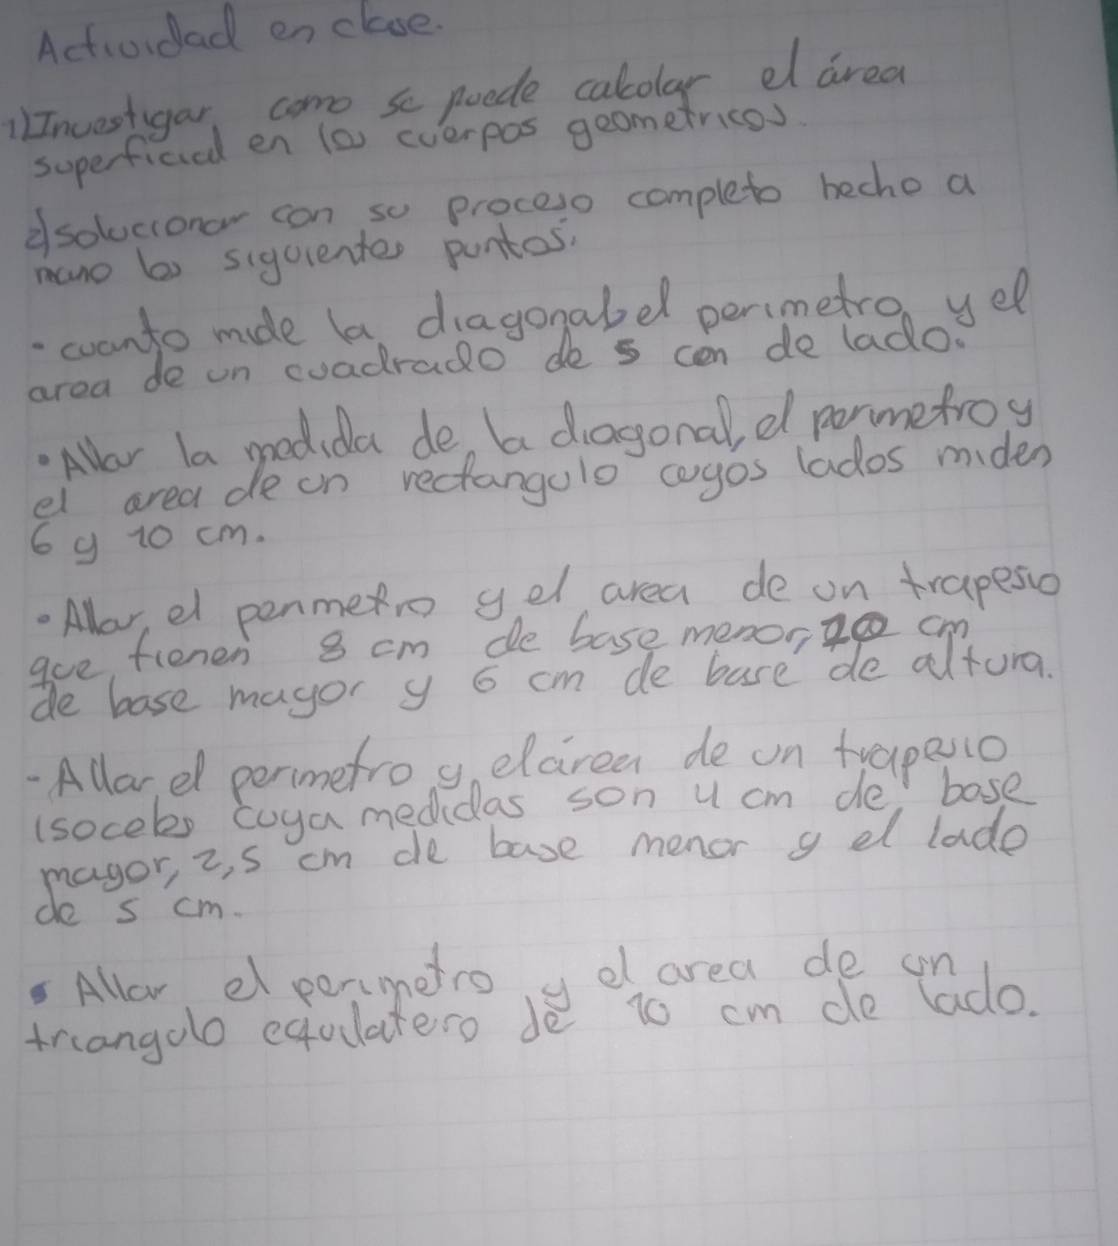 Actividad en clase.
1) Investigar como se puede calcolar el área
superficial en los cuerpos geometricos.
2) solucionar con su proceso completo hecho a
mano los siguientes puntos.
· cuanto mide la diagonal el perimetro y el
area de un cuadrado de 5 cm de lado.
· Allar la medida de la diagonal, el perimetro y
el area de un rectangulo cuyos lados miden
6 y 10 cm.
· Allar el perimetro y el area de un trapesio
que tienen 8 cm de base menor, 10 cm
de base mayor y 6 cm de base de altura.
- Allar el perimetro y el área de un trapesio
isoceles cuya medidas son 4 cm de base
mayor, 2,5 cm de base menor y el lado
de 5 cm.
· Allar el perimetro y el area de un
triangulo equilatero de 10 cm de lado.